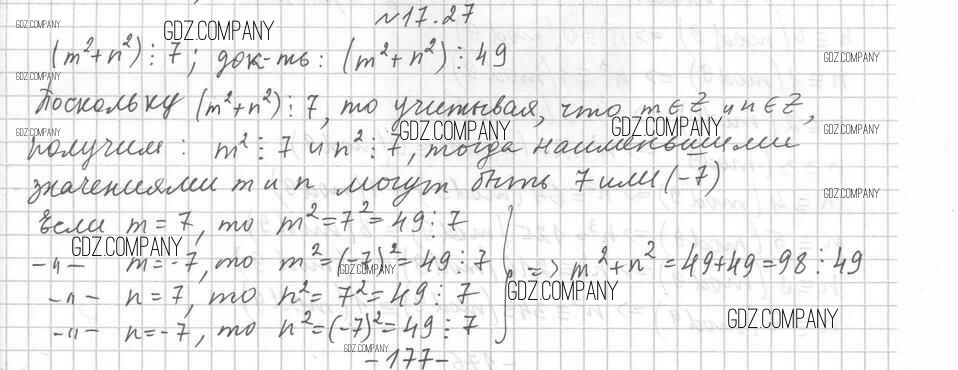 №17.27
GDZ.COMPANY GDZ.COMPANY
(m²+n²)⋮7; док-ть: (m²+n²)⋮49
GDZ.COMPANY
GDZ.COMPANY
Поскольку (m²+n²)⋮7, то учитывая, что m∈Z и n∈Z,
GDZ.COMPANY GDZ.COMPANY GDZ.COMPANY GDZ.COMPANY
получим: m²⋮7 и n²⋮7, тогда наименьшими
значениями m и n могут быть 7 или (-7)
GDZ.COMPANY GDZ.COMPANY
Если m=7, то m²=7²=49⋮7
GDZ.COMPANY
-"- m=-7, то m²=(-7)²=49⋮7
GDZ.COMPANY
=> m²+n²=49+49=98⋮49
GDZ.COMPANY
-"- n=7, то n²=7²=49⋮7
-"- n=-7, то n²=(-7)²=49⋮7
GDZ.COMPANY
GDZ.COMPANY
-177-